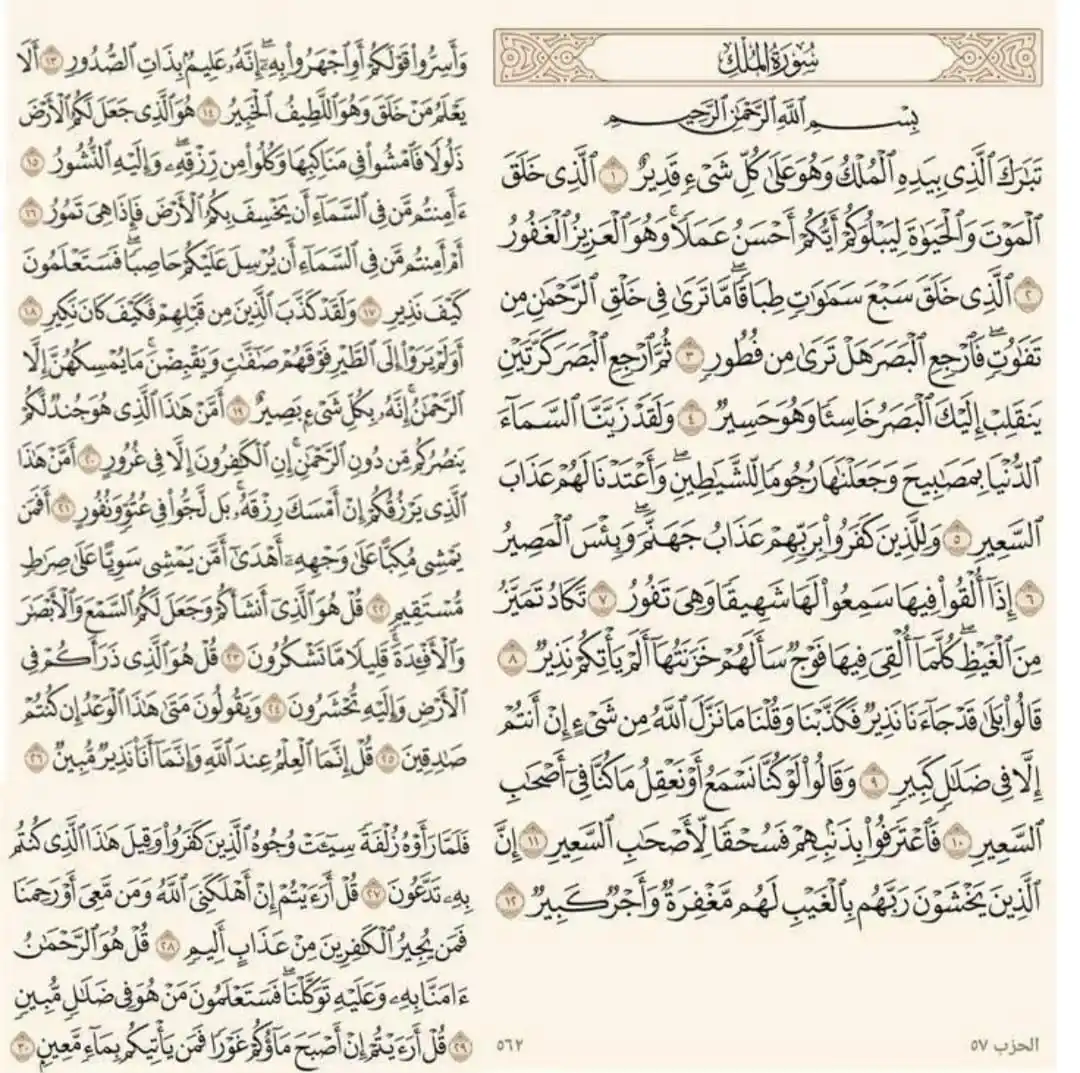 سُورَةُ المُلْكِ
بِسْمِ اللَّهِ الرَّحْمَٰنِ الرَّحِيمِ
تَبَٰرَكَ ٱلَّذِى بِيَدِهِ ٱلْمُلْكُ وَهُوَ عَلَىٰ كُلِّ شَىْءٍ قَدِيرٌ ١ ٱلَّذِى خَلَقَ
ٱلْمَوْتَ وَٱلْحَيَوٰةَ لِيَبْلُوَكُمْ أَيُّكُمْ أَحْسَنُ عَمَلًا ۚ وَهُوَ ٱلْعَزِيزُ ٱلْغَفُورُ
٢ ٱلَّذِى خَلَقَ سَبْعَ سَمَٰوَٰتٍ طِبَاقًا ۖ مَّا تَرَىٰ فِى خَلْقِ ٱلرَّحْمَٰنِ مِن
تَفَٰوُتٍ ۖ فَٱرْجِعِ ٱلْبَصَرَ هَلْ تَرَىٰ مِن فُطُورٍ ٣ ثُمَّ ٱرْجِعِ ٱلْبَصَرَ كَرَّتَيْنِ
يَنقَلِبْ إِلَيْكَ ٱلْبَصَرُ خَاسِئًا وَهُوَ حَسِيرٌ ٤ وَلَقَدْ زَيَّنَّا ٱلسَّمَآءَ
ٱلدُّنْيَا بِمَصَٰبِيحَ وَجَعَلْنَٰهَا رُجُومًا لِّلشَّيَٰطِينِ ۖ وَأَعْتَدْنَا لَهُمْ عَذَابَ
ٱلسَّعِيرِ ٥ وَلِلَّذِينَ كَفَرُوا۟ بِرَبِّهِمْ عَذَابُ جَهَنَّمَ ۖ وَبِئْسَ ٱلْمَصِيرُ
٦ إِذَآ أُلْقُوا۟ فِيهَا سَمِعُوا۟ لَهَا شَهِيقًا وَهِىَ تَفُورُ ٧ تَكَادُ تَمَيَّزُ
مِنَ ٱلْغَيْظِ ۖ كُلَّمَآ أُلْقِىَ فِيهَا فَوْجٌ سَأَلَهُمْ خَزَنَتُهَآ أَلَمْ يَأْتِكُمْ نَذِيرٌ ٨
قَالُوا۟ بَلَىٰ قَدْ جَآءَنَا نَذِيرٌ فَكَذَّبْنَا وَقُلْنَا مَا نَزَّلَ ٱللَّهُ مِن شَىْءٍ إِنْ أَنتُمْ
إِلَّا فِى ضَلَٰلٍ كَبِيرٍ ٩ وَقَالُوا۟ لَوْ كُنَّا نَسْمَعُ أَوْ نَعْقِلُ مَا كُنَّا فِىٓ أَصْحَٰبِ
ٱلسَّعِيرِ ١٠ فَٱعْتَرَفُوا۟ بِذَنۢبِهِمْ فَسُحْقًا لِّأَصْحَٰبِ ٱلسَّعِيرِ ١١ إِنَّ
ٱلَّذِينَ يَخْشَوْنَ رَبَّهُم بِٱلْغَيْبِ لَهُم مَّغْفِرَةٌ وَأَجْرٌ كَبِيرٌ ١٢
الحزب ٥٧
٥٦٢
وَأَسِرُّوا۟ قَوْلَكُمْ أَوِ ٱجْهَرُوا۟ بِهِۦٓ ۖ إِنَّهُۥ عَلِيمٌۢ بِذَاتِ ٱلصُّدُورِ ١٣ أَلَا
يَعْلَمُ مَنْ خَلَقَ وَهُوَ ٱللَّطِيفُ ٱلْخَبِيرُ ١٤ هُوَ ٱلَّذِى جَعَلَ لَكُمُ ٱلْأَرْضَ
ذَلُولًا فَٱمْشُوا۟ فِى مَنَاكِبِهَا وَكُلُوا۟ مِن رِّزْقِهِۦ ۖ وَإِلَيْهِ ٱلنُّشُورُ ١٥
ءَأَمِنتُم مَّن فِى ٱلسَّمَآءِ أَن يَخْسِفَ بِكُمُ ٱلْأَرْضَ فَإِذَا هِىَ تَمُورُ ١٦
أَمْ أَمِنتُم مَّن فِى ٱلسَّمَآءِ أَن يُرْسِلَ عَلَيْكُمْ حَاصِبًا ۖ فَسَتَعْلَمُونَ
كَيْفَ نَذِيرِ ١٧ وَلَقَدْ كَذَّبَ ٱلَّذِينَ مِن قَبْلِهِمْ فَكَيْفَ كَانَ نَكِيرِ ١٨
أَوَلَمْ يَرَوْا۟ إِلَى ٱلطَّيْرِ فَوْقَهُمْ صَٰٓفَّٰتٍ وَيَقْبِضْنَ ۚ مَا يُمْسِكُهُنَّ إِلَّا
ٱلرَّحْمَٰنُ ۚ إِنَّهُۥ بِكُلِّ شَىْءٍۭ بَصِيرٌ ١٩ أَمَّنْ هَٰذَا ٱلَّذِى هُوَ جُندٌ لَّكُمْ
يَنصُرُكُم مِّن دُونِ ٱلرَّحْمَٰنِ ۚ إِنِ ٱلْكَٰفِرُونَ إِلَّا فِى غُرُورٍ ٢٠ أَمَّنْ هَٰذَا
ٱلَّذِى يَرْزُقُكُمْ إِنْ أَمْسَكَ رِزْقَهُۥ ۚ بَل لَّجُّوا۟ فِى عُتُوٍّ وَنُفُورٍ ٢١ أَفَمَن
يَمْشِى مُكِبًّا عَلَىٰ وَجْهِهِۦٓ أَهْدَىٰٓ أَمَّن يَمْشِى سَوِيًّا عَلَىٰ صِرَٰطٍ
مُّسْتَقِيمٍ ٢٢ قُلْ هُوَ ٱلَّذِىٓ أَنشَأَكُمْ وَجَعَلَ لَكُمُ ٱلسَّمْعَ وَٱلْأَبْصَٰرَ
وَٱلْأَفْـِٔدَةَ ۖ قَلِيلًا مَّا تَشْكُرُونَ ٢٣ قُلْ هُوَ ٱلَّذِى ذَرَأَكُمْ فِى
ٱلْأَرْضِ وَإِلَيْهِ تُحْشَرُونَ ٢٤ وَيَقُولُونَ مَتَىٰ هَٰذَا ٱلْوَعْدُ إِن كُنتُمْ
صَٰدِقِينَ ٢٥ قُلْ إِنَّمَا ٱلْعِلْمُ عِندَ ٱللَّهِ وَإِنَّمَآ أَنَا۠ نَذِيرٌ مُّبِينٌ ٢٦
فَلَمَّا رَأَوْهُ زُلْفَةً سِيٓـَٔتْ وُجُوهُ ٱلَّذِينَ كَفَرُوا۟ وَقِيلَ هَٰذَا ٱلَّذِى كُنتُم
بِهِۦ تَدَّعُونَ ٢٧ قُلْ أَرَءَيْتُمْ إِنْ أَهْلَكَنِىَ ٱللَّهُ وَمَن مَّعِىَ أَوْ رَحِمَنَا
فَمَن يُجِيرُ ٱلْكَٰفِرِينَ مِنْ عَذَابٍ أَلِيمٍ ٢٨ قُلْ هُوَ ٱلرَّحْمَٰنُ
ءَامَنَّا بِهِۦ وَعَلَيْهِ تَوَكَّلْنَا ۖ فَسَتَعْلَمُونَ مَنْ هُوَ فِى ضَلَٰلٍ مُّبِينٍ
٢٩ قُلْ أَرَءَيْتُمْ إِنْ أَصْبَحَ مَآؤُكُمْ غَوْرًا فَمَن يَأْتِيكُم بِمَآءٍ مَّعِينٍۭ ٣٠